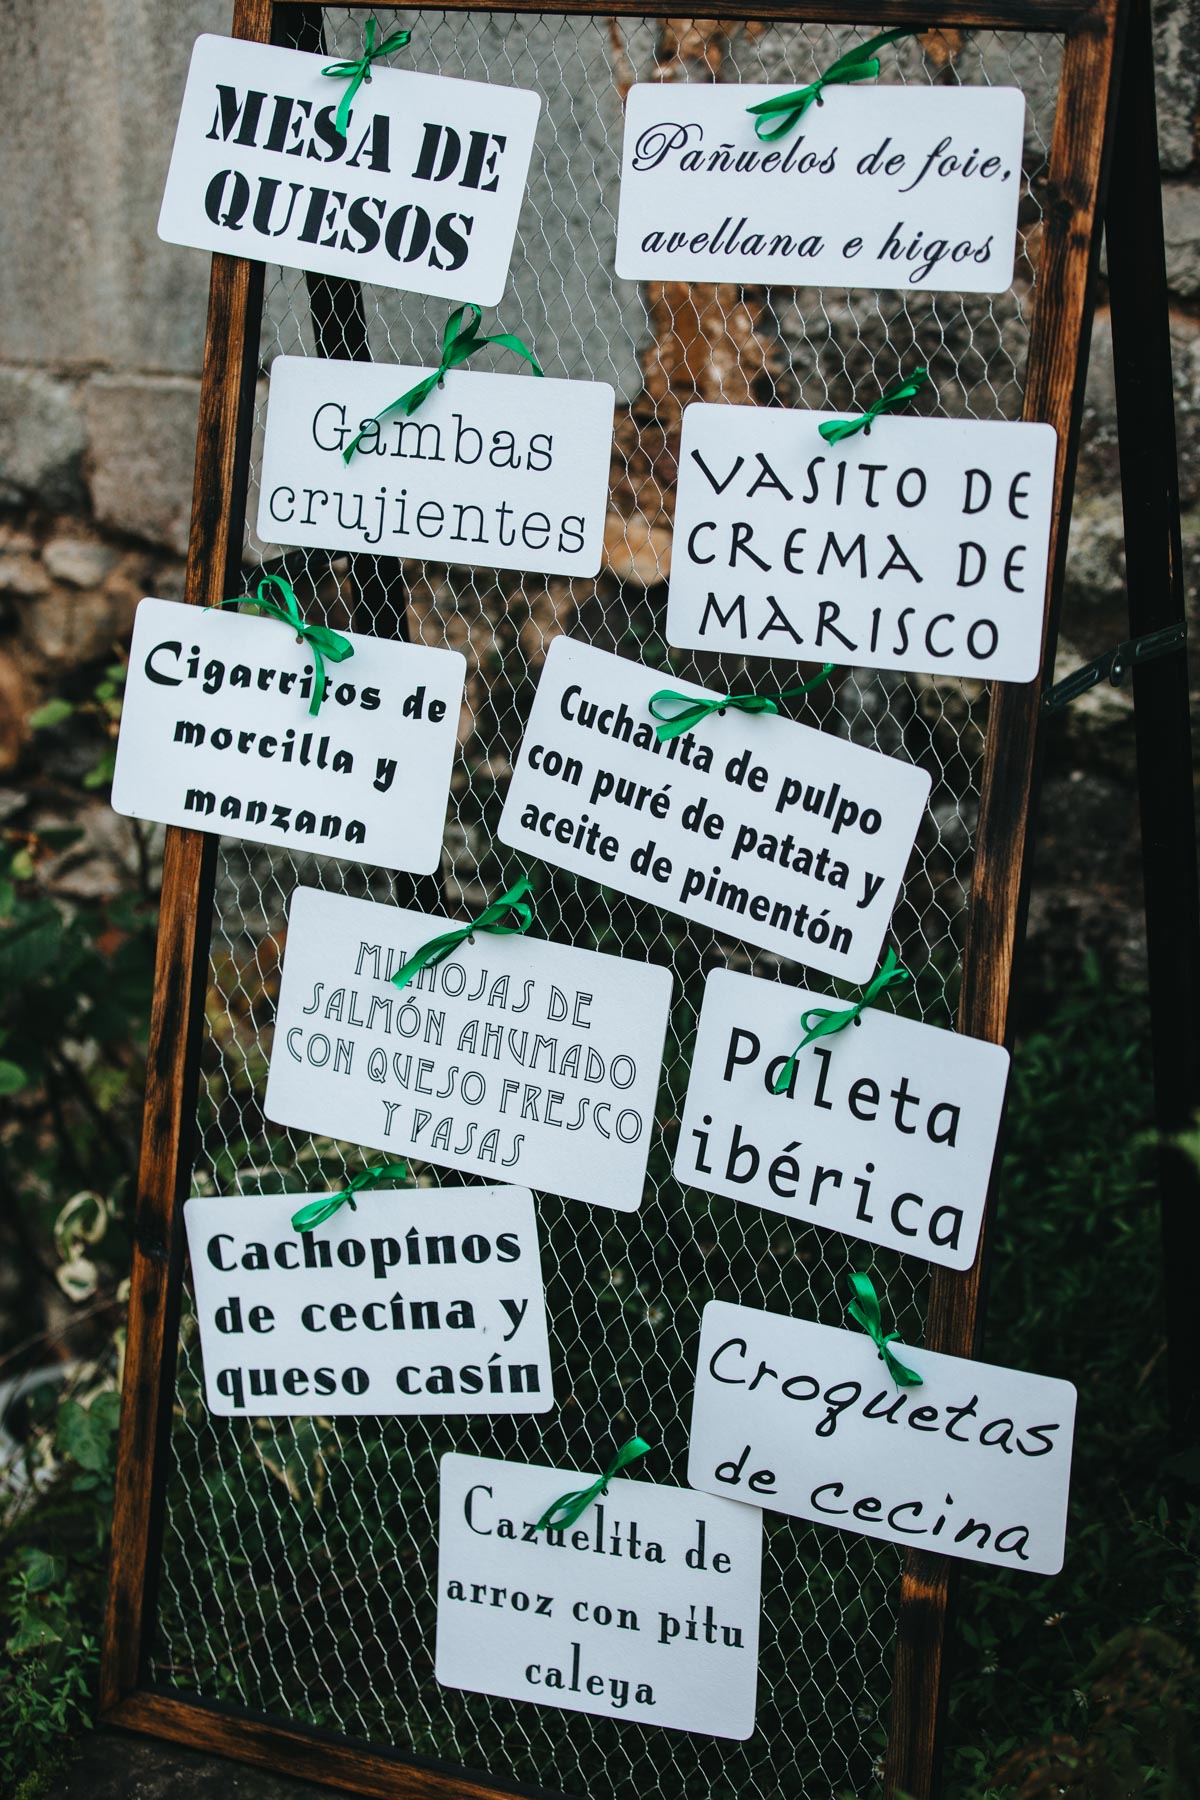 MESA DE
QUESOS
Pañuelos de foie,
avellana e higos
Gambas
crujientes
VASITO DE
CREMA DE
MARISCO
Cigarritos de
morcilla y
manzana
Cucharita de pulpo
con puré de patata y
aceite de pimentón
MILHOJAS DE
SALMÓN AHUMADO
CON QUESO FRESCO
Y PASAS
Paleta
ibérica
Cachopinos
de cecina y
queso casín
Croquetas
de cecina
Cazuelita de
arroz con pitu
caleya